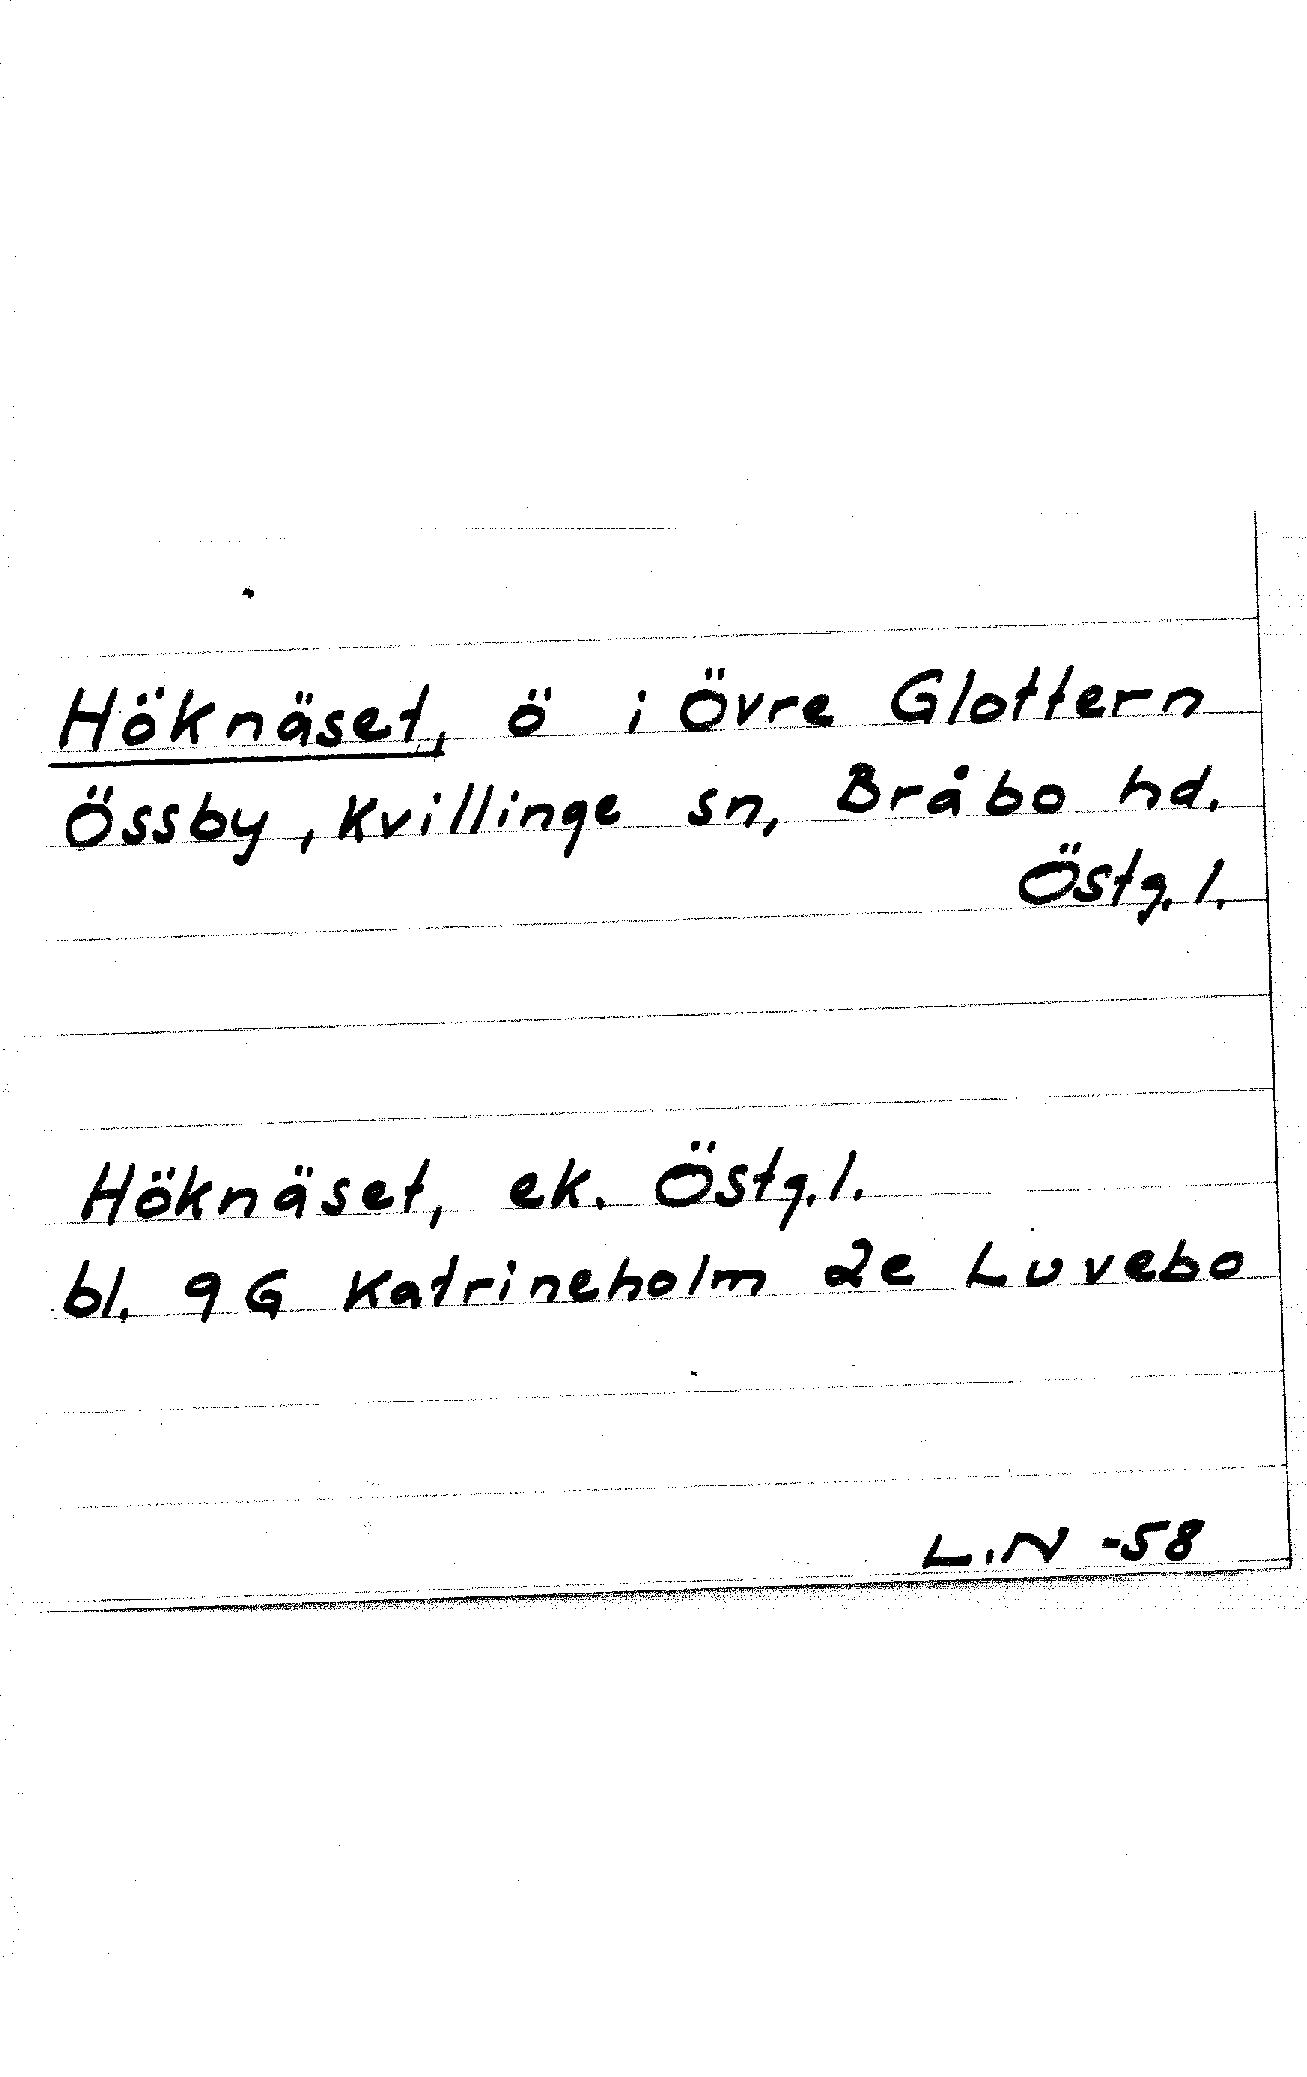 Höknäset, ö i Övre Glottern
Össby, Kvillinge sn, Bråbo hd.
Östg. l.
Höknäset, ek. Östg. l.
bl. 9 G Katrineholm 2e Luvebo
L.N -58